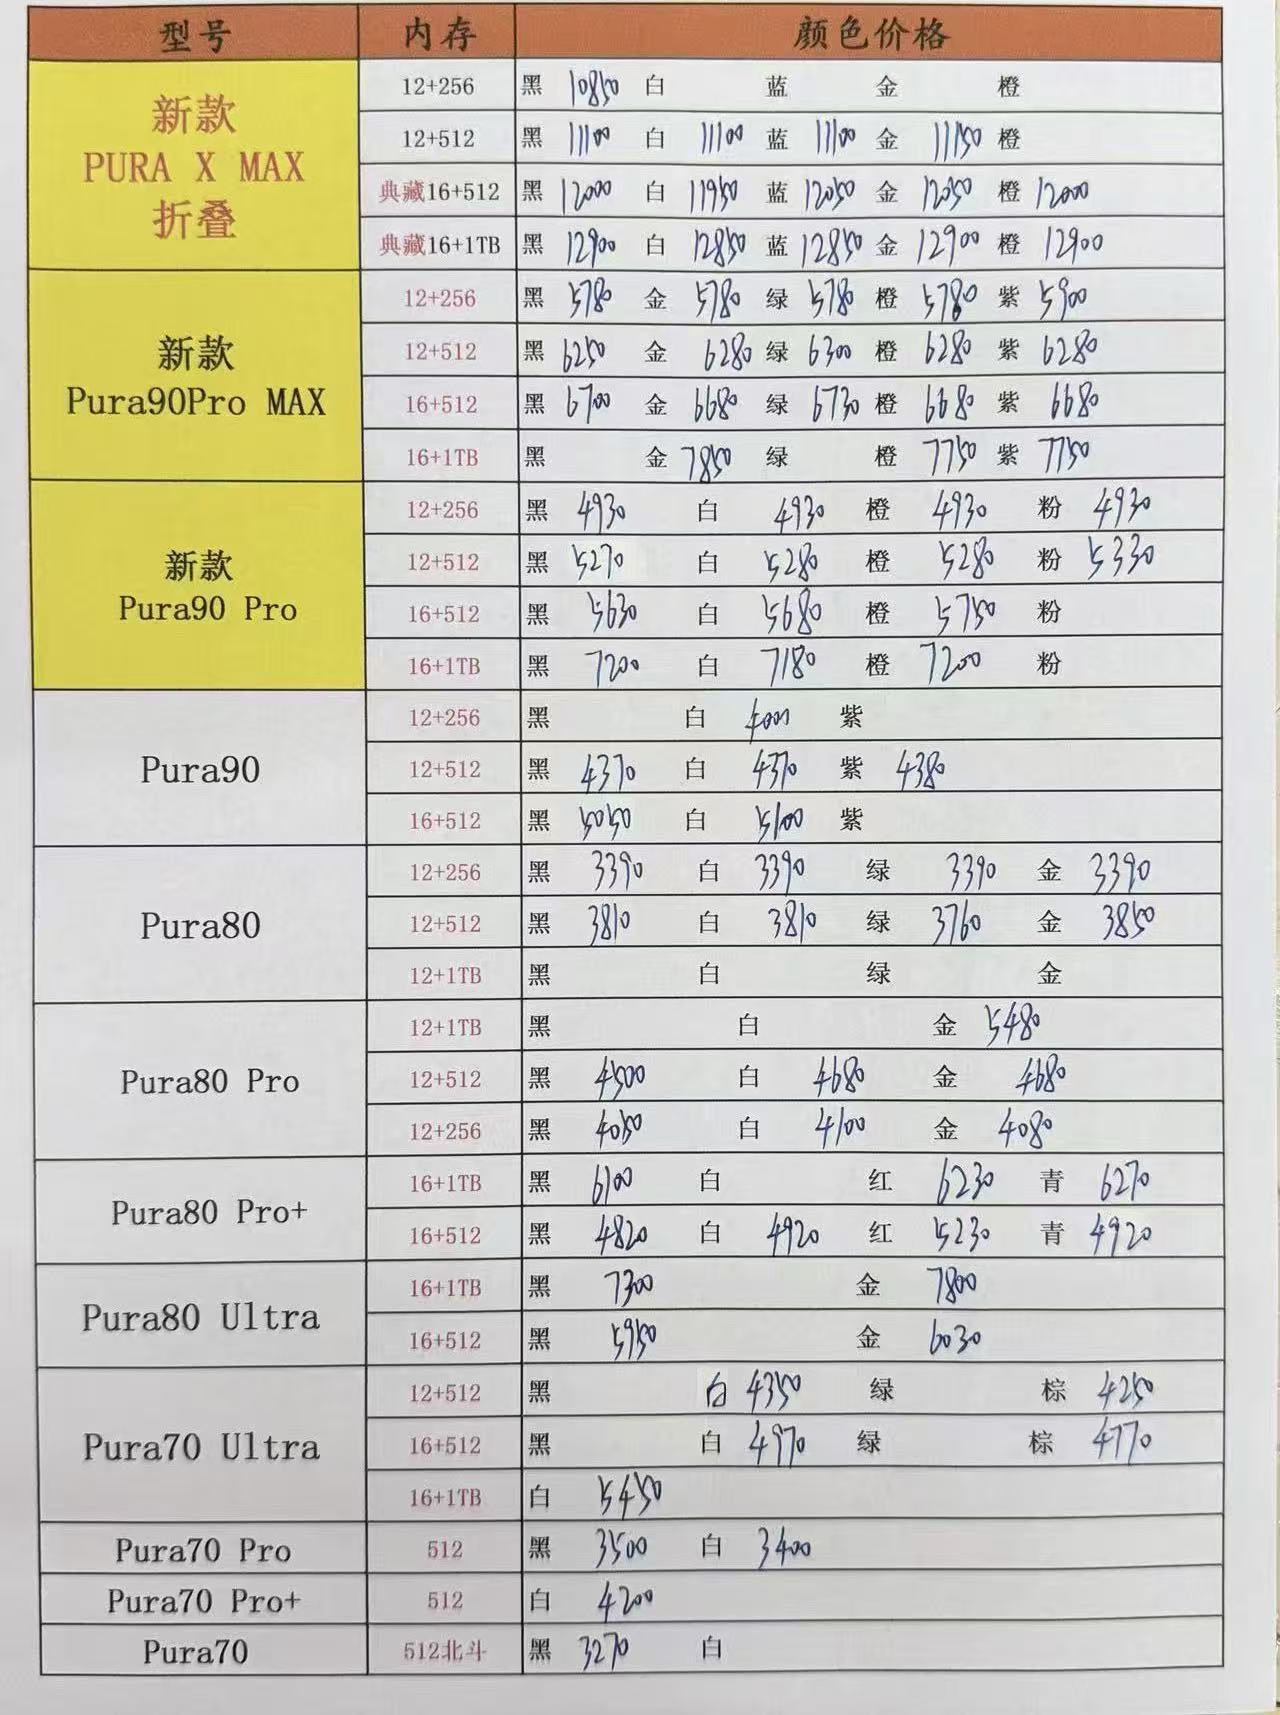 型号 内存 颜色价格
新款 PURA X MAX 折叠
12+256 黑 10850 白 蓝 金 橙
12+512 黑 11100 白 11100 蓝 11100 金 11150 橙
典藏16+512 黑 12000 白 11950 蓝 12050 金 12050 橙 12000
典藏16+1TB 黑 12900 白 12850 蓝 12850 金 12900 橙 12900
新款 Pura90Pro MAX
12+256 黑 5780 金 5780 绿 5780 橙 5780 紫 5900
12+512 黑 6250 金 6280 绿 6300 橙 6280 紫 6280
16+512 黑 6700 金 6680 绿 6730 橙 6680 紫 6680
16+1TB 黑 金 7850 绿 橙 7750 紫 7750
新款 Pura90 Pro
12+256 黑 4930 白 4930 橙 4930 粉 4930
12+512 黑 5270 白 5280 橙 5280 粉 5330
16+512 黑 5630 白 5680 橙 5750 粉
16+1TB 黑 7200 白 7180 橙 7200 粉
Pura90
12+256 黑 白 4000 紫
12+512 黑 4370 白 4370 紫 4380
16+512 黑 5050 白 5100 紫
Pura80
12+256 黑 3390 白 3390 绿 3390 金 3390
12+512 黑 3810 白 3810 绿 3760 金 3850
12+1TB 黑 白 绿 金
Pura80 Pro
12+1TB 黑 白 金 5480
12+512 黑 4500 白 4680 金 4680
12+256 黑 4050 白 4100 金 4080
Pura80 Pro+
16+1TB 黑 6100 白 红 6230 青 6270
16+512 黑 4820 白 4920 红 5230 青 4920
Pura80 Ultra
16+1TB 黑 7300 金 7800
16+512 黑 5950 金 6030
Pura70 Ultra
12+512 黑 白 4350 绿 棕 4250
16+512 黑 白 4970 绿 棕 4770
16+1TB 白 5450
Pura70 Pro 512 黑 3500 白 3400
Pura70 Pro+ 512 白 4200
Pura70 512北斗 黑 3270 白